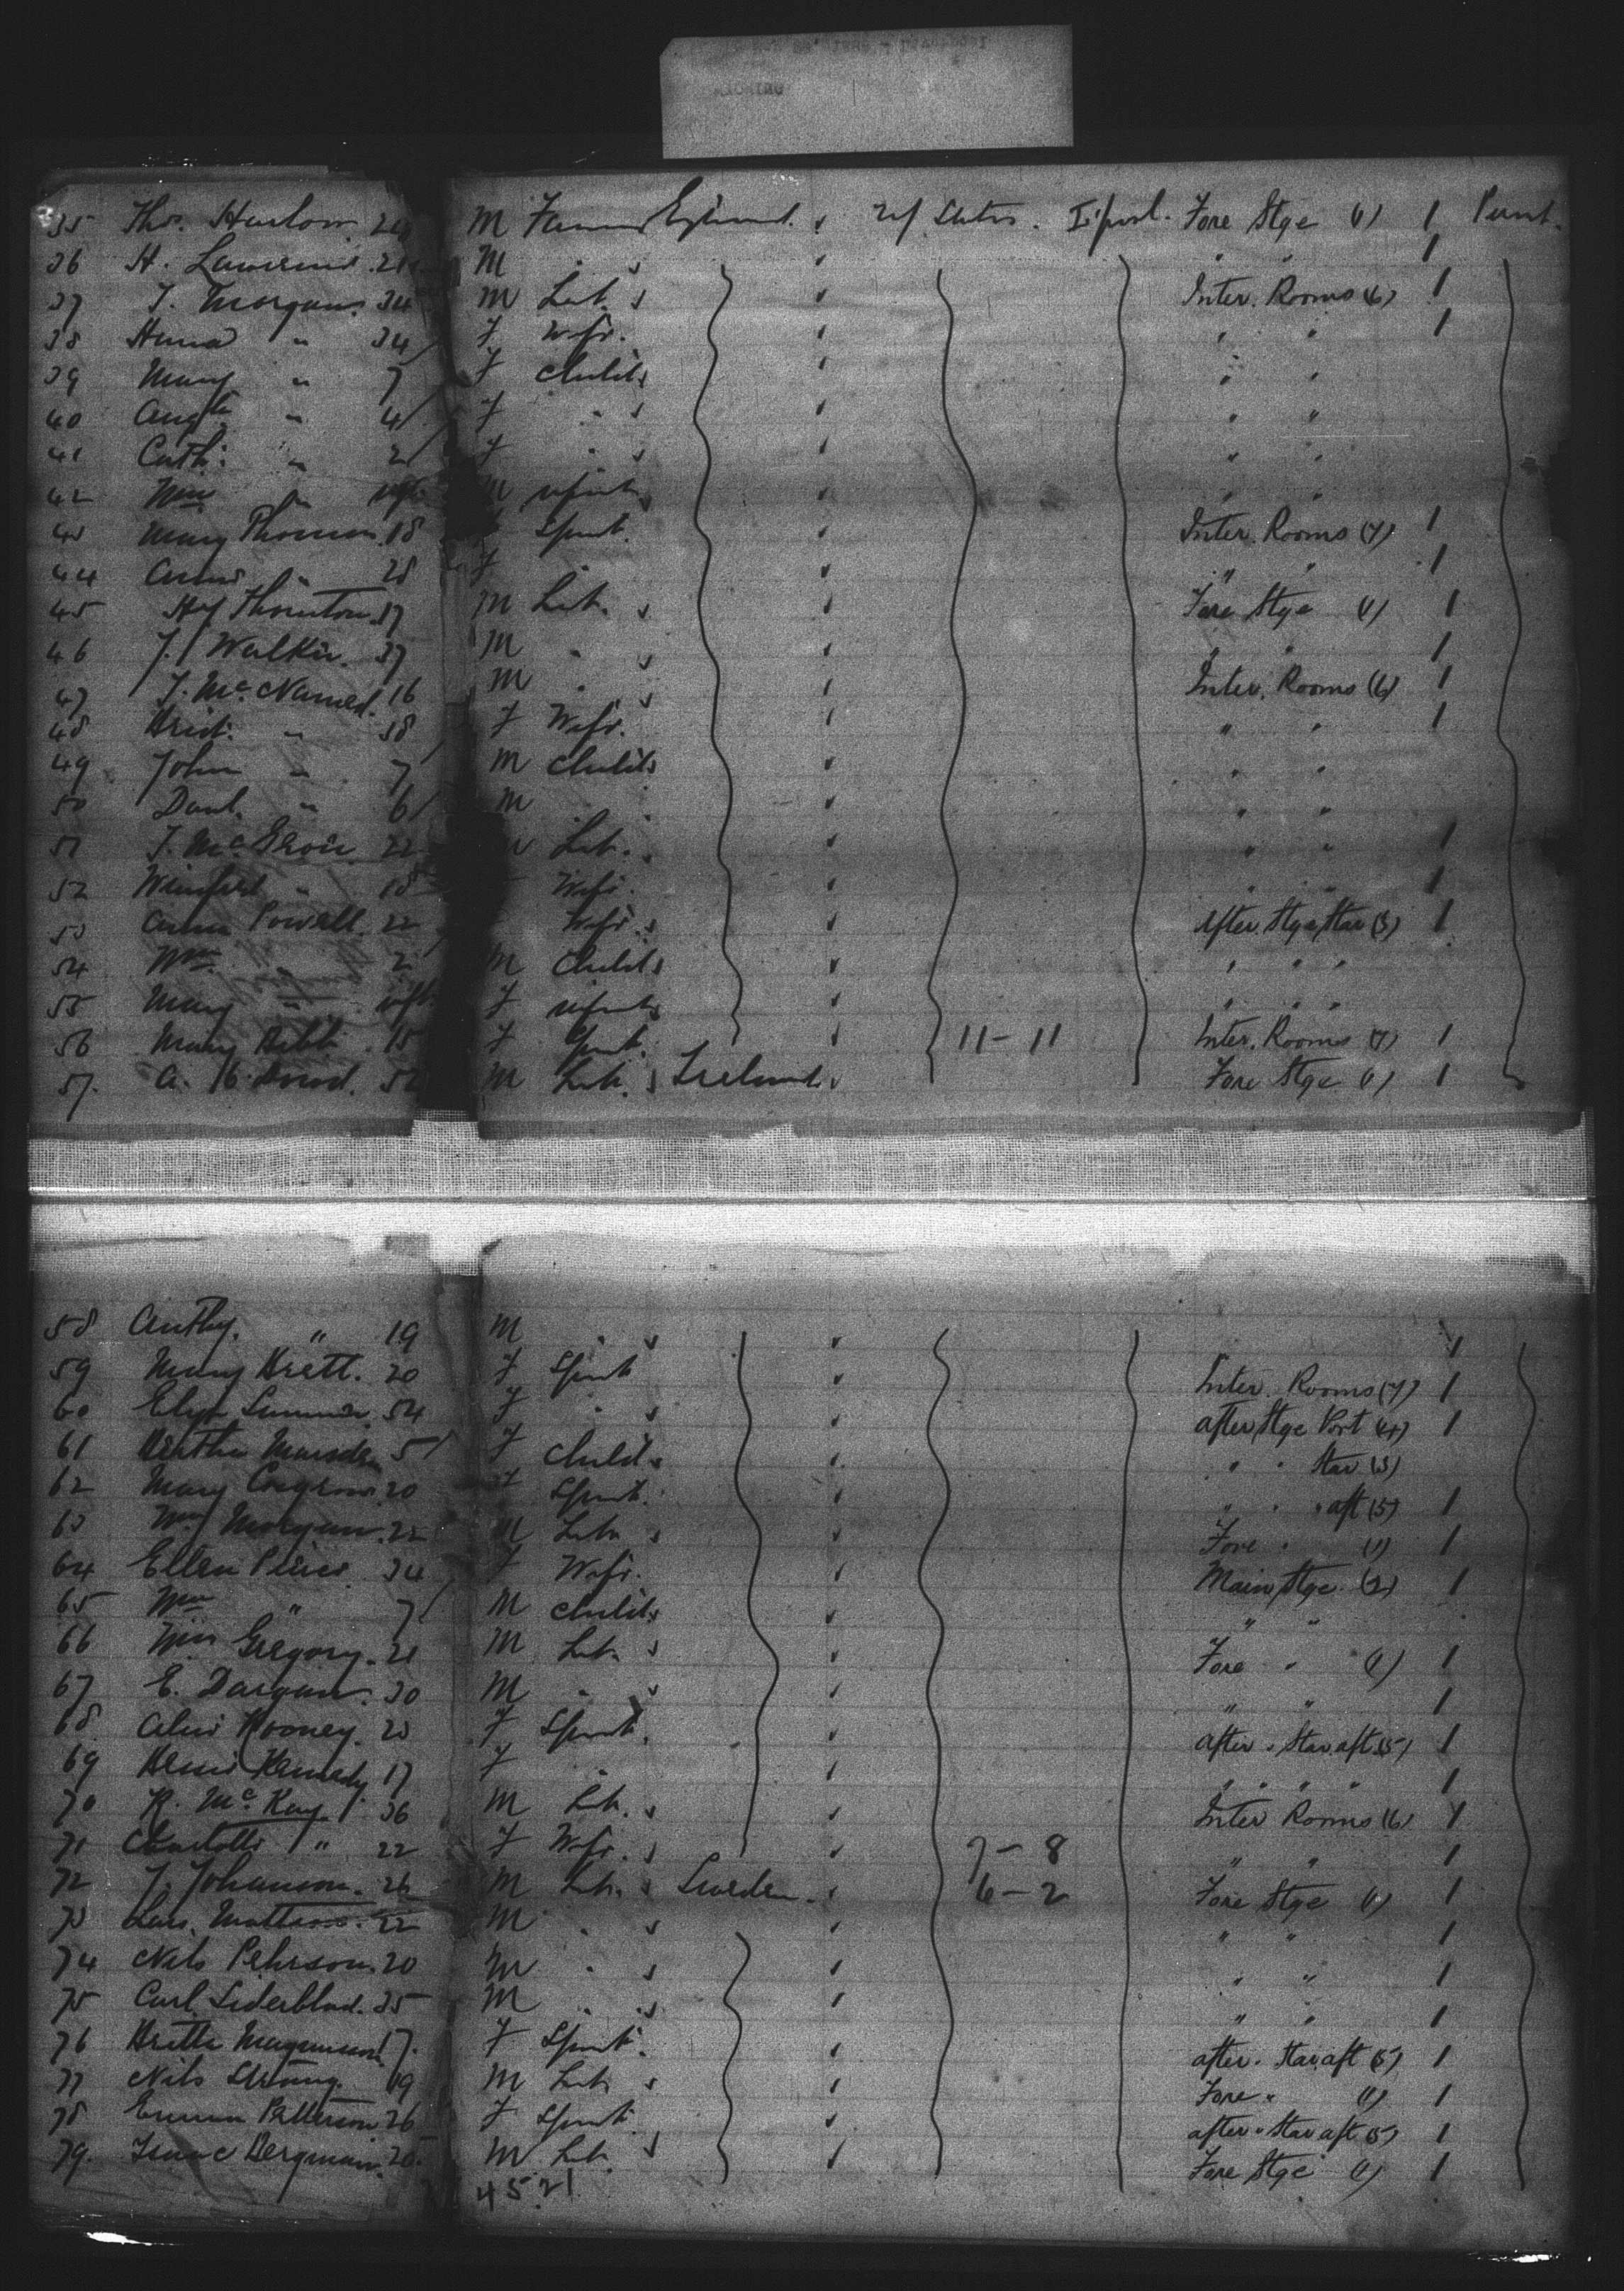 35 Thos. Harlow. 24 M Farmer England. U/ States. L'pool. Fore Stge (1) 1 Perm't.
36 H. Lawrence 21 M " " " 1
37 T. Morgan. 34 M Lab. Inter. Rooms (6) 1
38 Anna " 34 F Wife. " " 1
39 Mary " 7 F Child " "
40 Aug'ta " 4 F " " "
41 Cath: " 2 F " " "
42 Wm " inft M infant " "
43 Mary Thomas. 18 Spinst. Inter. Rooms (7) 1
44 Annie " 28 F " " " 1
45 Hy Thornton. 17 M Lab. Fore Stge (1) 1
46 J. Walker. 37 M " " " 1
47 T. McNamed. 16 M " Inter. Rooms (6) 1
48 Brid. " 38 F Wife. " " 1
49 John " 7 M Child " "
50 Danl. " 6 M " " "
51 T. Mc 22 Lab. " " 1
52 Winifred " 18 Wife. " " 1
53 Anna Powell. 22 Wife. After Stge Star (3) 1
54 Wm " 2 M Child " " "
55 Mary " inft F infant " " "
56 Mary 15 F Spinst. 11-11 Inter. Rooms (7) 1
57. A. 52 M Lab. Ireland. Fore Stge (1) 1
58 Anthy. " 19 M " 1
59 Mary Brett. 20 F Spinst Inter. Rooms (7) 1
60 Eliza 54 F " after Stge Port (4) 1
61 Bertha Marsden 5 F Child " " Star (3)
62 Mary Cosgrove 20 F Spinst. " " " aft (5) 1
63 Wm Morgan. 22 M Lab Fore " (1) 1
64 Ellen Peirce 34 F Wife. Main Stge. (2) 1
65 Wm " 7 M Child " "
66 Wm Gregory. 21 M Lab. Fore " (1) 1
67 E. Dargan. 30 M " " " 1
68 Alice Rooney. 20 F Spinst. after " Star aft (5) 1
69 Bessie Kennedy 17 F " " " " " 1
70 R. McKay 36 M Lab. Inter Rooms (6) 1
71 Charlotte " 22 F Wife. 7-8 " " 1
72 J. Johanson. 26 M Lab. Sweden. 6-2 Fore Stge (1) 1
73 Lars. Mattson. 22 M " " " 1
74 Nils Pehrson. 20 M " " " 1
75 Carl Liderblad. 35 M " " " 1
76 Britta Magnusson 17. F Spinst. after " Star aft (5) 1
77 Nils 19 M Lab Fore " (1) 1
78 Emma Petterson 26 F Spinst. after " Star aft (5) 1
79. Isaac Bergman. 20. M Lab. Fore Stge (1) 1
4521